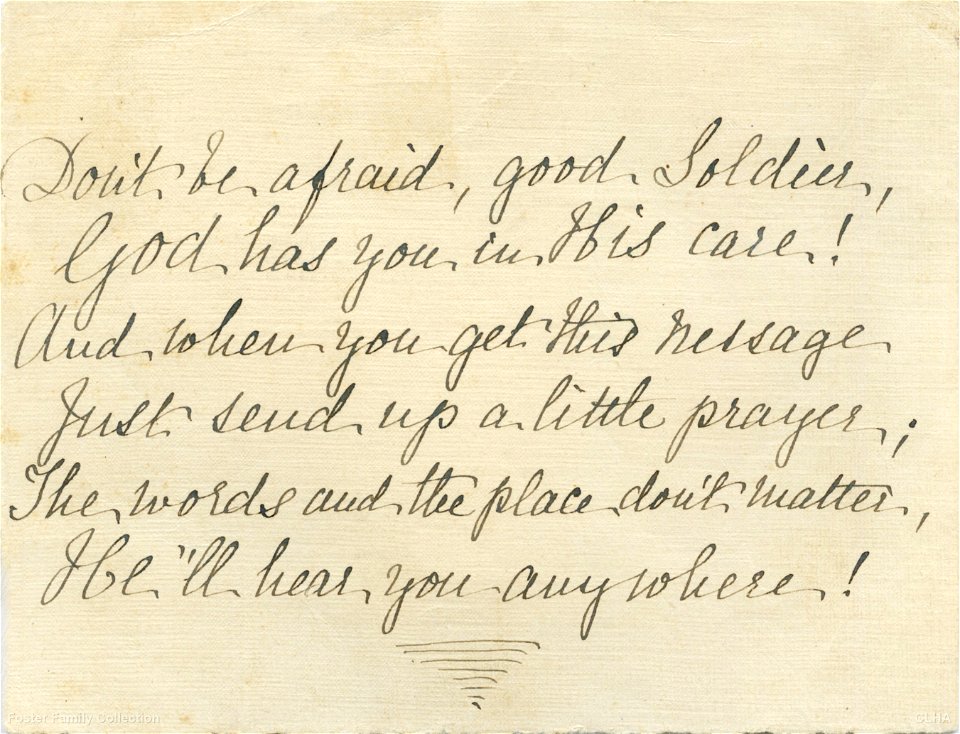 Don't be afraid, good Soldier,
God has you in His care!
And when you get this message
Just send up a little prayer;
The words and the place don't matter,
He'll hear you anywhere!
Foster Family Collection
CLHA